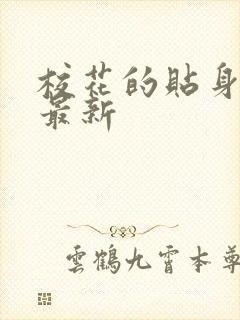 校花的貼身
最新
雲鶴九霄本尊